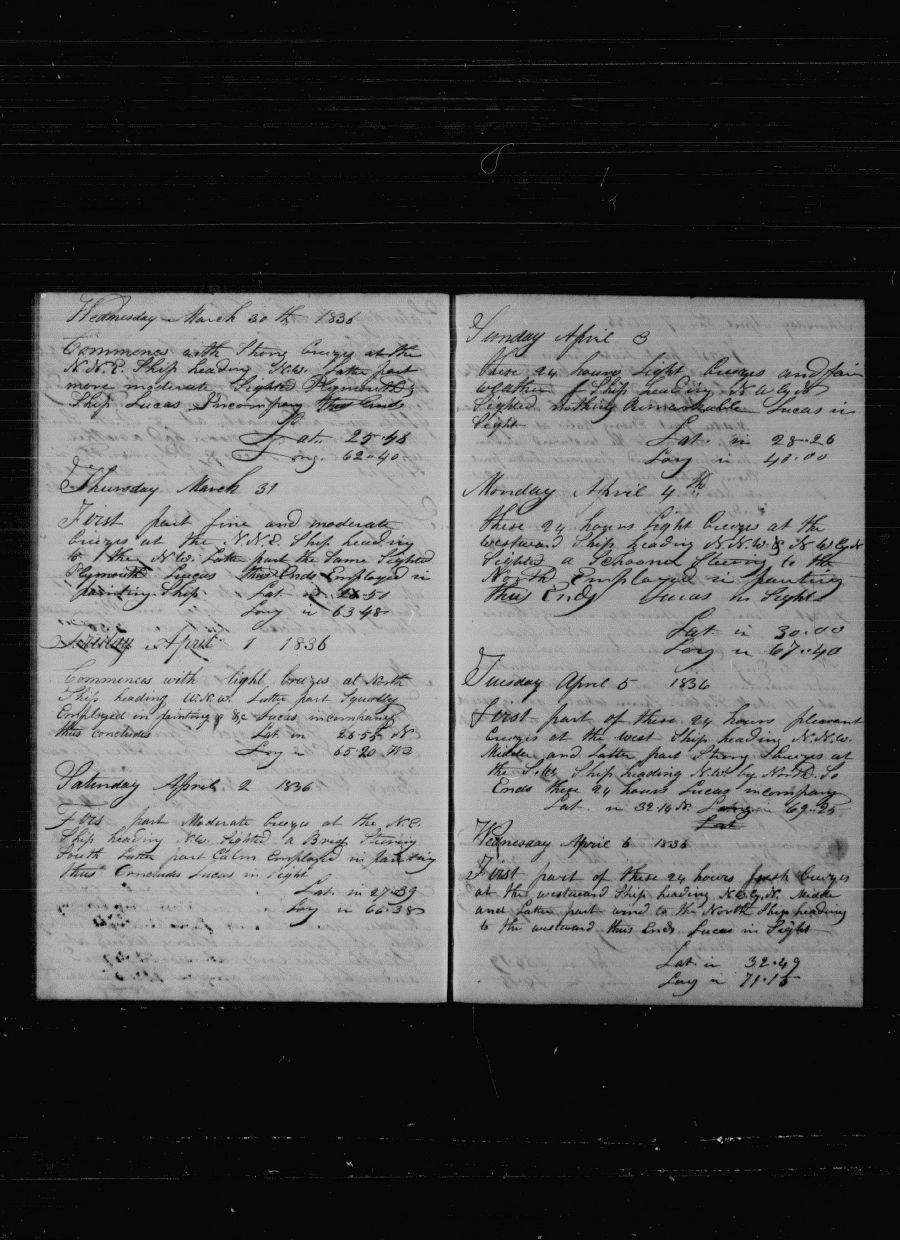 Wednesday March 30 th 1836
Commences with Strong breezes at the
N.N.E. Ship heading N.W. Latter part
more moderate Sighted Plymouth &
Ship Lucas Incompany thus Ends
Lat. 25-48
Long. 62-40
Thursday March 31
First part fine and moderate
breezes at the N.N.E. Ship heading
to the N.W. Latter part the Same Sighted
Plymouth Lucas thus Ends Employed in
painting Ship. Lat in 26-50
Long in 63-48
April 1 1836
Commences with light breezes at North
Ship heading W.N.W. Latter part Squally
Employed in painting & &c Lucas incompany
thus concludes Lat in 26-58 N
Long in 65-20 W
Saturday April 2 1836
Firs part Moderate breezes at the N.E.
Ship heading N.W. Sighted a Brig Steering
South Latter part Calm Employed in painting
thus Concludes Lucas in Sight
Lat. in 27-39
Long in 66-38
Sunday April 3
these 24 hours Light breezes and fair
weather Ship heading N W by N
Sighted nothing Remarkable Lucas in
Sight
Lat. in 28-26
Long in 40-00
Monday April 4 th
these 24 hours light breezes at the
westward Ship heading N.N.W & N W by N
Sighted a Schooner Steering to the
North Employed in painting
thus Ends Lucas in Sight
Lat in 30-00
Long in 67-40
Tuesday April 5 1836
First part of these 24 hours pleasant
breezes at the west Ship heading N.N.W.
Middle and Latter part Strong breezes at
the S.W. Ship heading N.W. by N. So
Ends these 24 hours Lucas incompany
Lat. in 32-14 N. Long in 69-25
Lat
Wednesday April 6 1836
First part of these 24 hours fresh breezes
at the westward Ship heading N by N. Midde
and Latter part wind to the North Ship heading
to the westward thus Ends Lucas in Sight
Lat in 32-49
Long in 71-15